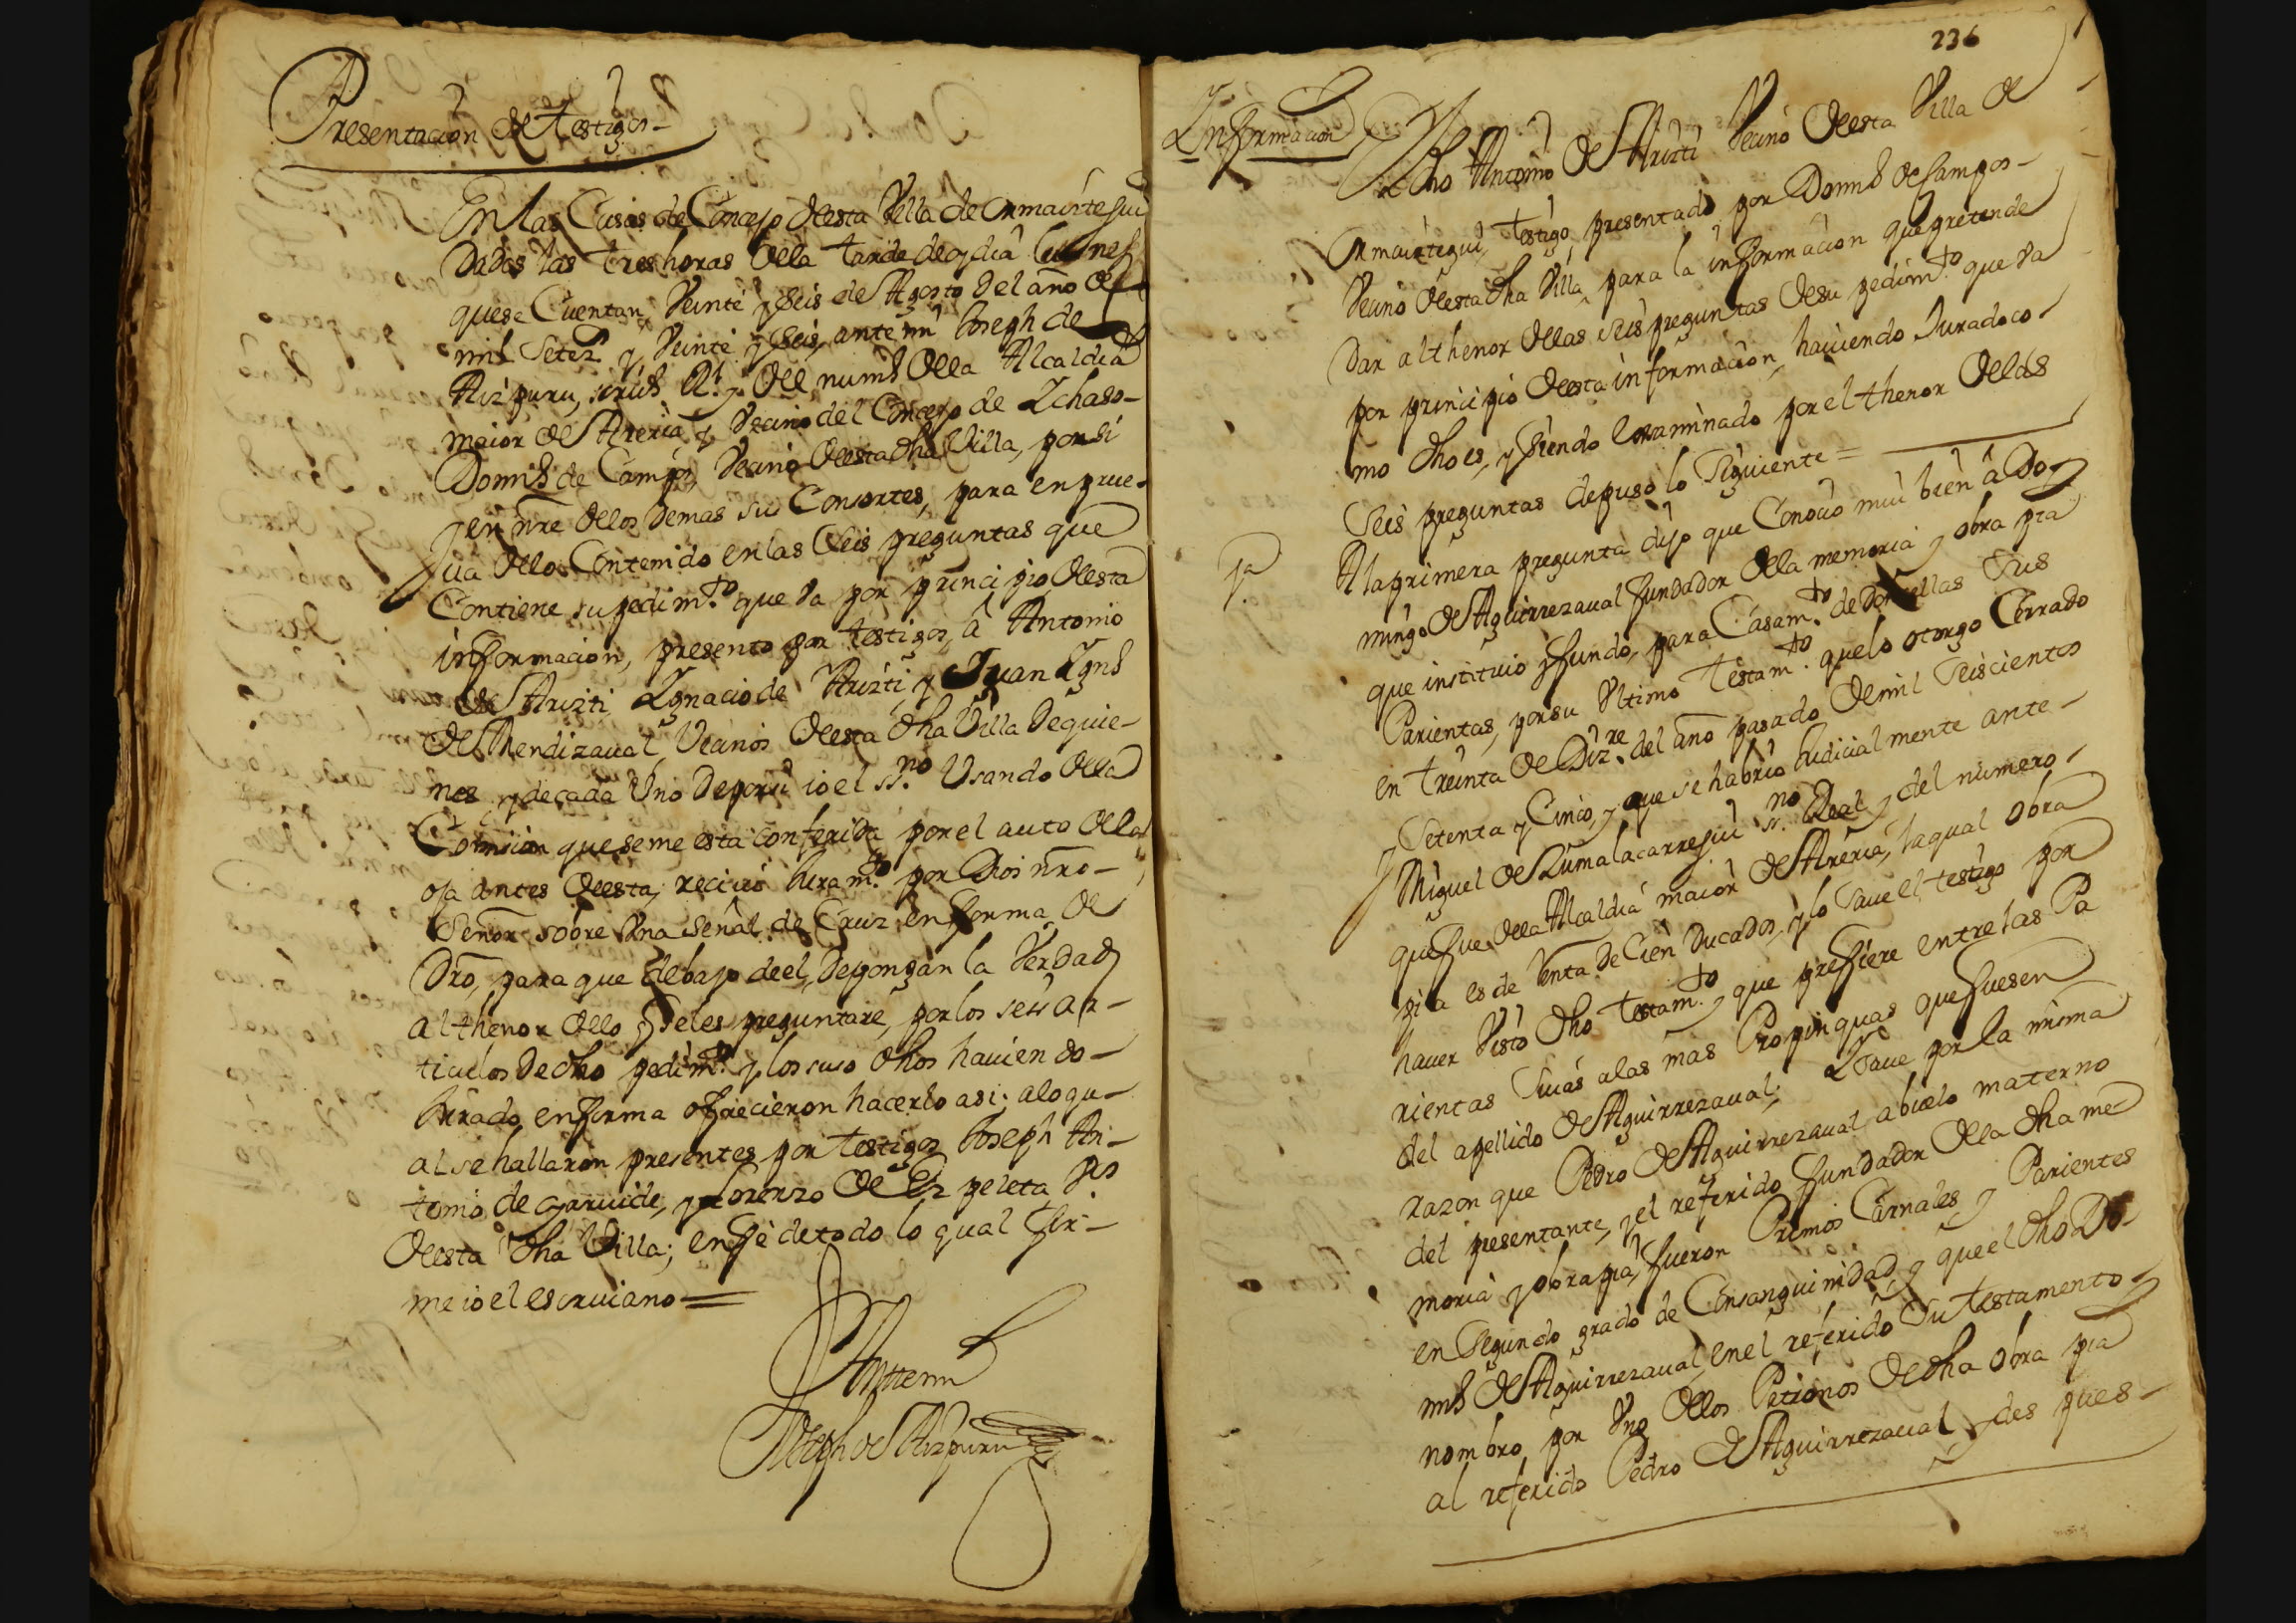 Presentacion de testigos
En las Casas de Concejo desta Villa de Ormaiztegui
Dadas las tres horas dela tarde de oy dia lunes
que se Cuentan Veinte y seis de Agosto del año de
mil Setez.s y Veinte y Seis, ante mi Joseph de
Aizpuru, scriu.o Rl. y del num.o dela Alcaldia
maior de Areria, y Vecino del Concejo de Ichaso
Domi.o de Campos, Vecino desta dha Villa, por si
y en nre delos demas sus Consortes, para en prue
ua delo Contenido en las Seis preguntas que
Contiene su pedim.to que va por principio desta
informacion, presento por testigos, â Antonio
de Arizti, Ignacio de Arizti, y Juan Ign.o
de Mendizaual, Vecinos desta dha Villa de quie
nes y de cada Uno de por si io el ss.no Usando dela
Comision que se me esta conferida por el auto dela
oja antes desta, reciui Juram.to por Dios nro
Señor sobre Una señal de Cruz en forma de
Dro, para que debajo deel, Depongan la Verdad
al thenor delo q se les preguntare, por los seis ar
ticulos de dho pedim.to y los suso dhos hauiendo
Jurado en forma ofrecieron hacerlo asi; alo qu
al se hallaron presentes por testigos Joseph An
tonio de Garuide, y Lorenzo de Ezpeleta V.os
desta dha Villa; en fe de todo lo qual fir
me io el escriuano
Antte mi
Joseph de Aizpuru
236
Informacion
Dho Antonio de Arizti Vecino desta Villa de
Ormaiztegui, testigo presentado por Domi.o de Campos
Vecino desta dha Villa para la informacion que pretende
Dar al thenor delas seis preguntas de su pedim.to que va
por principio desta informacion, hauiendo Jurado co
mo dho es, y siendo examinado por el thenor delas
Seis preguntas depuso lo Siguiente =
1.a
A la primera pregunta dijo que Conocio mui bien â Do
mingo de Aguirrezaual fundador dela memoria y obra pia
que instituio y fundo, para Casam.to de Doncellas Sus
Parientas, por su Ultimo testam.to que lo otorgo Cerrado
en treinta de Diz.re del año pasado de mil Seiscientos
y Setenta y Cinco, y que se habrio Judicialmente ante
Miguel de Zumalacarregui ss.no Real y del numero
que fue dela Alcaldia maior de Areria, la qual obra
pia es de Renta de Cien Ducados, y lo Saue el testigo por
hauer Visto dho testam.to y que prefiere entre las Pa
rientas Suias a las mas Propinquas que fuesen
del apellido de Aguirrezaual; Y Saue por la misma
razon que Pedro de Aguirrezaual, abuelo materno
del presentante, y el referido fundador dela dha me
moria y obra pia, fueron Primos Carnales, y Parientes
en Segundo grado de Consanguinidad, y que el dho Do
mi.o de Aguirrezaual, en el referido Su testamento
nombro por Uno delos Patronos de dha obra pia
al referido Pedro de Aguirrezaual y des pues